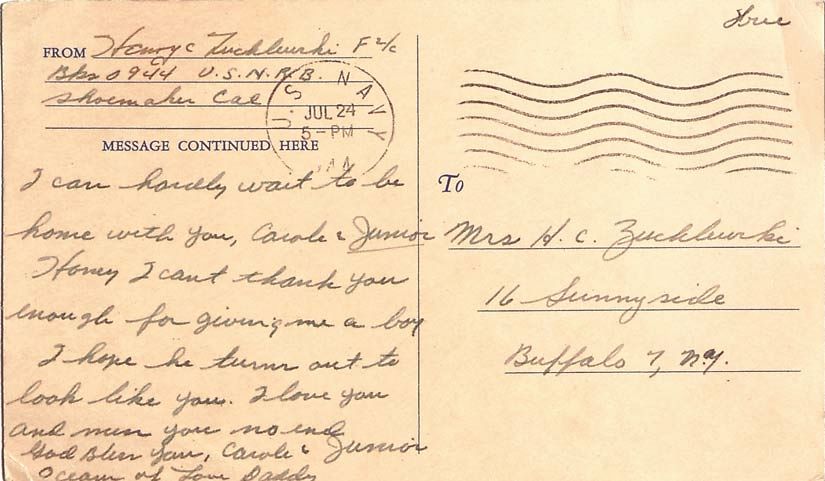 Free
FROM Henry C Zucklewski F 2/c
Bks 0944 U.S.N.R.B.
Shoemaker Cal
U.S. NAVY
JUL 24
5-PM
MESSAGE CONTINUED HERE
I can hardly wait to be
home with you, Carole & Junior
Honey I cant thank you
enough for giving me a boy
I hope he turns out to
look like you. I love you
and miss you no end
God Bless You, Carole & Junior
Oceans of Love Daddy
To
Mrs H. C. Zucklewski
16 Sunnyside
Buffalo 7, N.Y.